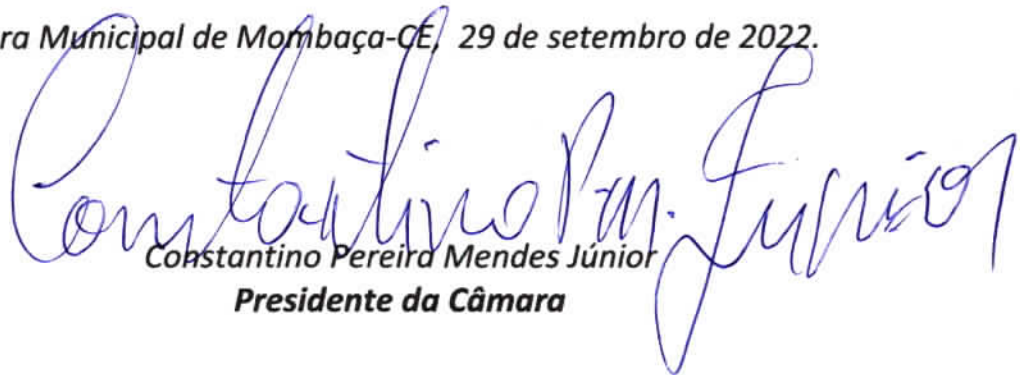 ra Municipal de Mombaça-CE, 29 de setembro de 2022.
Constantino Pm. Júnior
Constantino Pereira Mendes Júnior
Presidente da Câmara